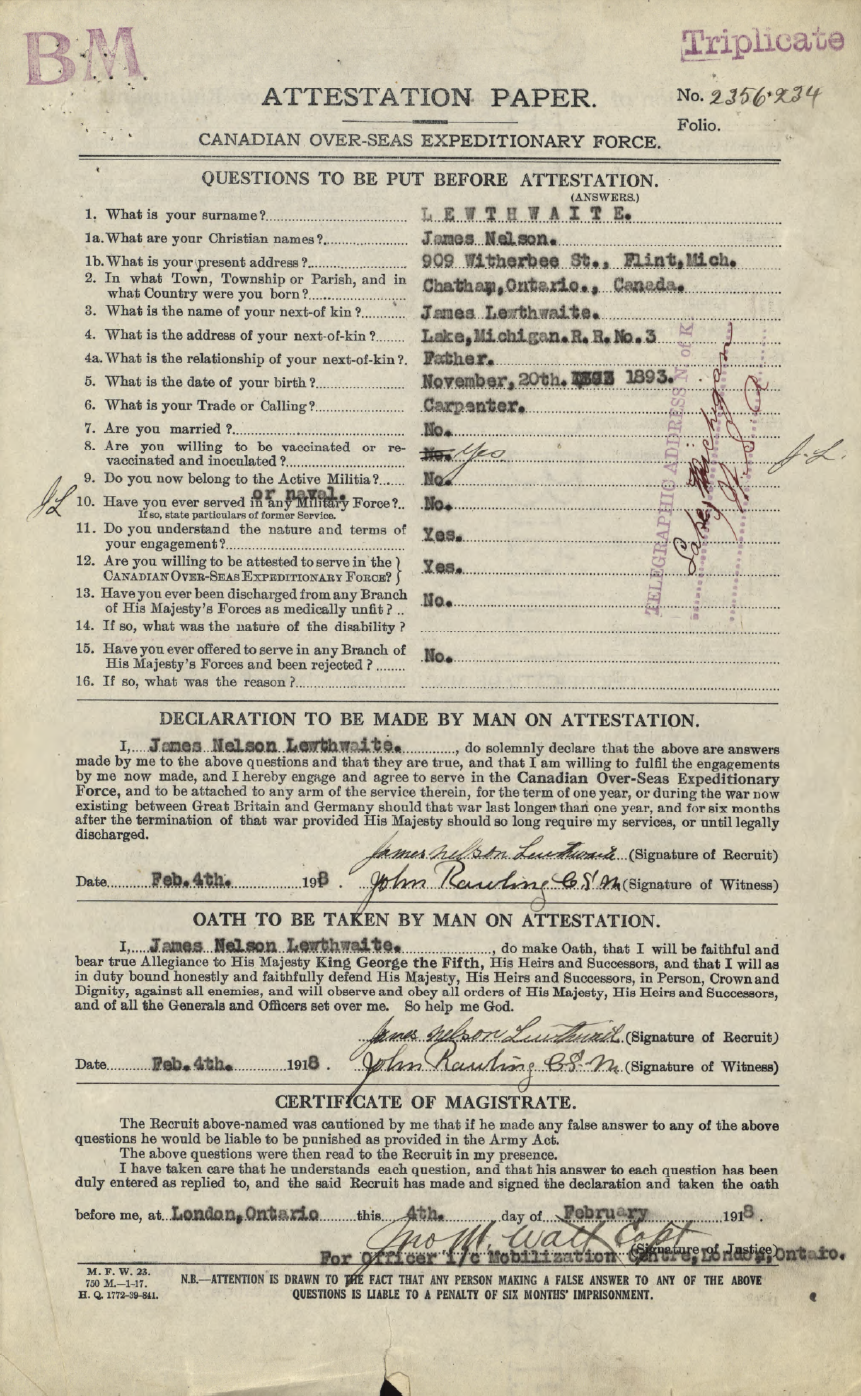 BM
Triplicate
ATTESTATION PAPER.
No. 2356234
Folio.
CANADIAN OVER-SEAS EXPEDITIONARY FORCE.
QUESTIONS TO BE PUT BEFORE ATTESTATION.
(ANSWERS.)
1. What is your surname? LEWTHWAITE.
1a. What are your Christian names? James Nelson.
1b. What is your present address? 909 Witherbee St., Flint, Mich.
2. In what Town, Township or Parish, and in
what Country were you born? Chatham, Ontario., Canada.
3. What is the name of your next-of kin? James Lewthwaite.
4. What is the address of your next-of-kin? Lake, Michigan. R. R. No. 3
4a. What is the relationship of your next-of-kin? Father.
5. What is the date of your birth? November, 20th. 1893.
6. What is your Trade or Calling? Carpenter.
7. Are you married? No.
8. Are you willing to be vaccinated or re-
vaccinated and inoculated? No. Yes J. L.
9. Do you now belong to the Active Militia? No.
or naval.
J L 10. Have you ever served in any Military Force? No.
If so, state particulars of former Service.
11. Do you understand the nature and terms of
your engagement? Yes.
12. Are you willing to be attested to serve in the
CANADIAN OVER-SEAS EXPEDITIONARY FORCE? Yes.
13. Have you ever been discharged from any Branch
of His Majesty's Forces as medically unfit? No.
14. If so, what was the nature of the disability?
15. Have you ever offered to serve in any Branch of
His Majesty's Forces and been rejected? No.
16. If so, what was the reason?
TELEGRAPHIC ADDRESS N. of K.
Lake, Michigan
DECLARATION TO BE MADE BY MAN ON ATTESTATION.
I, James Nelson Lewthwaite. , do solemnly declare that the above are answers
made by me to the above questions and that they are true, and that I am willing to fulfil the engagements
by me now made, and I hereby engage and agree to serve in the Canadian Over-Seas Expeditionary
Force, and to be attached to any arm of the service therein, for the term of one year, or during the war now
existing between Great Britain and Germany should that war last longer than one year, and for six months
after the termination of that war provided His Majesty should so long require my services, or until legally
discharged.
James Nelson Lewthwaite (Signature of Recruit)
Date Feb. 4th. 1918. John Rawling C S M (Signature of Witness)
OATH TO BE TAKEN BY MAN ON ATTESTATION.
I, James Nelson Lewthwaite. , do make Oath, that I will be faithful and
bear true Allegiance to His Majesty King George the Fifth, His Heirs and Successors, and that I will as
in duty bound honestly and faithfully defend His Majesty, His Heirs and Successors, in Person, Crown and
Dignity, against all enemies, and will observe and obey all orders of His Majesty, His Heirs and Successors,
and of all the Generals and Officers set over me. So help me God.
James Nelson Lewthwaite (Signature of Recruit)
Date Feb. 4th. 1918. John Rawling C S M (Signature of Witness)
CERTIFICATE OF MAGISTRATE.
The Recruit above-named was cautioned by me that if he made any false answer to any of the above
questions he would be liable to be punished as provided in the Army Act.
The above questions were then read to the Recruit in my presence.
I have taken care that he understands each question, and that his answer to each question has been
duly entered as replied to, and the said Recruit has made and signed the declaration and taken the oath
before me, at London, Ontario this 4th. day of February 1918.
Jno M. Watt Capt (Signature of Justice)
For Officer i/c Mobilization Centre, London, Ontaro.
M. F. W. 23.
750 M.—1-17.
H. Q. 1772-39-841.
N.B.—ATTENTION IS DRAWN TO THE FACT THAT ANY PERSON MAKING A FALSE ANSWER TO ANY OF THE ABOVE
QUESTIONS IS LIABLE TO A PENALTY OF SIX MONTHS' IMPRISONMENT.